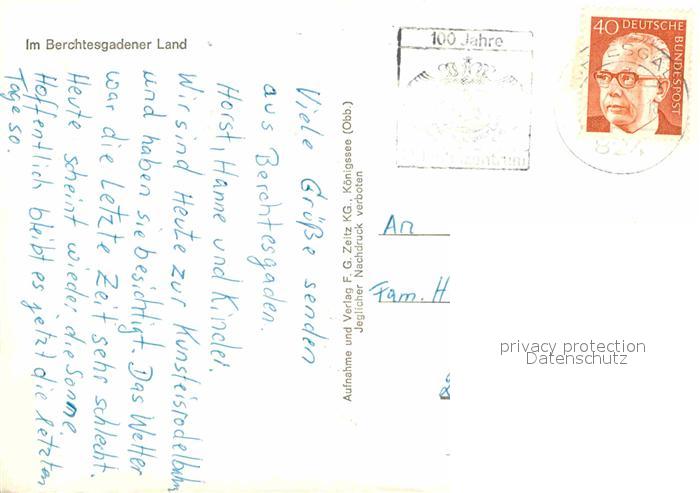 Im Berchtesgadener Land
Viele Grüße senden
aus Berchtesgaden.
Horst, Hanne und Kinder.
Wir sind Heute zur Kunsteisrodelbahn
und haben sie besichtigt. Das Wetter
war die Letzte Zeit sehr schlecht.
Heute scheint wieder die Sonne.
Hoffentlich bleibt es jetzt die letzten
Tage so.
Aufnahme und Verlag F. G. Zeitz KG., Königssee (Obb.)
Jeglicher Nachdruck verboten
100 Jahre
40 DEUTSCHE
BUNDESPOST
824
An
Fam. H
privacy protection
Datenschutz